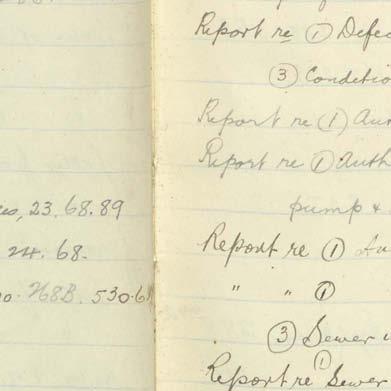 23. 68. 89
24. 68.
268B. 530.6
Report re ① Defec
③ Conditio
Report re ① Au
Report re ① Auth
pump &
Report re ① Au
" " ①
③ Sewer
Report re ① Sewer